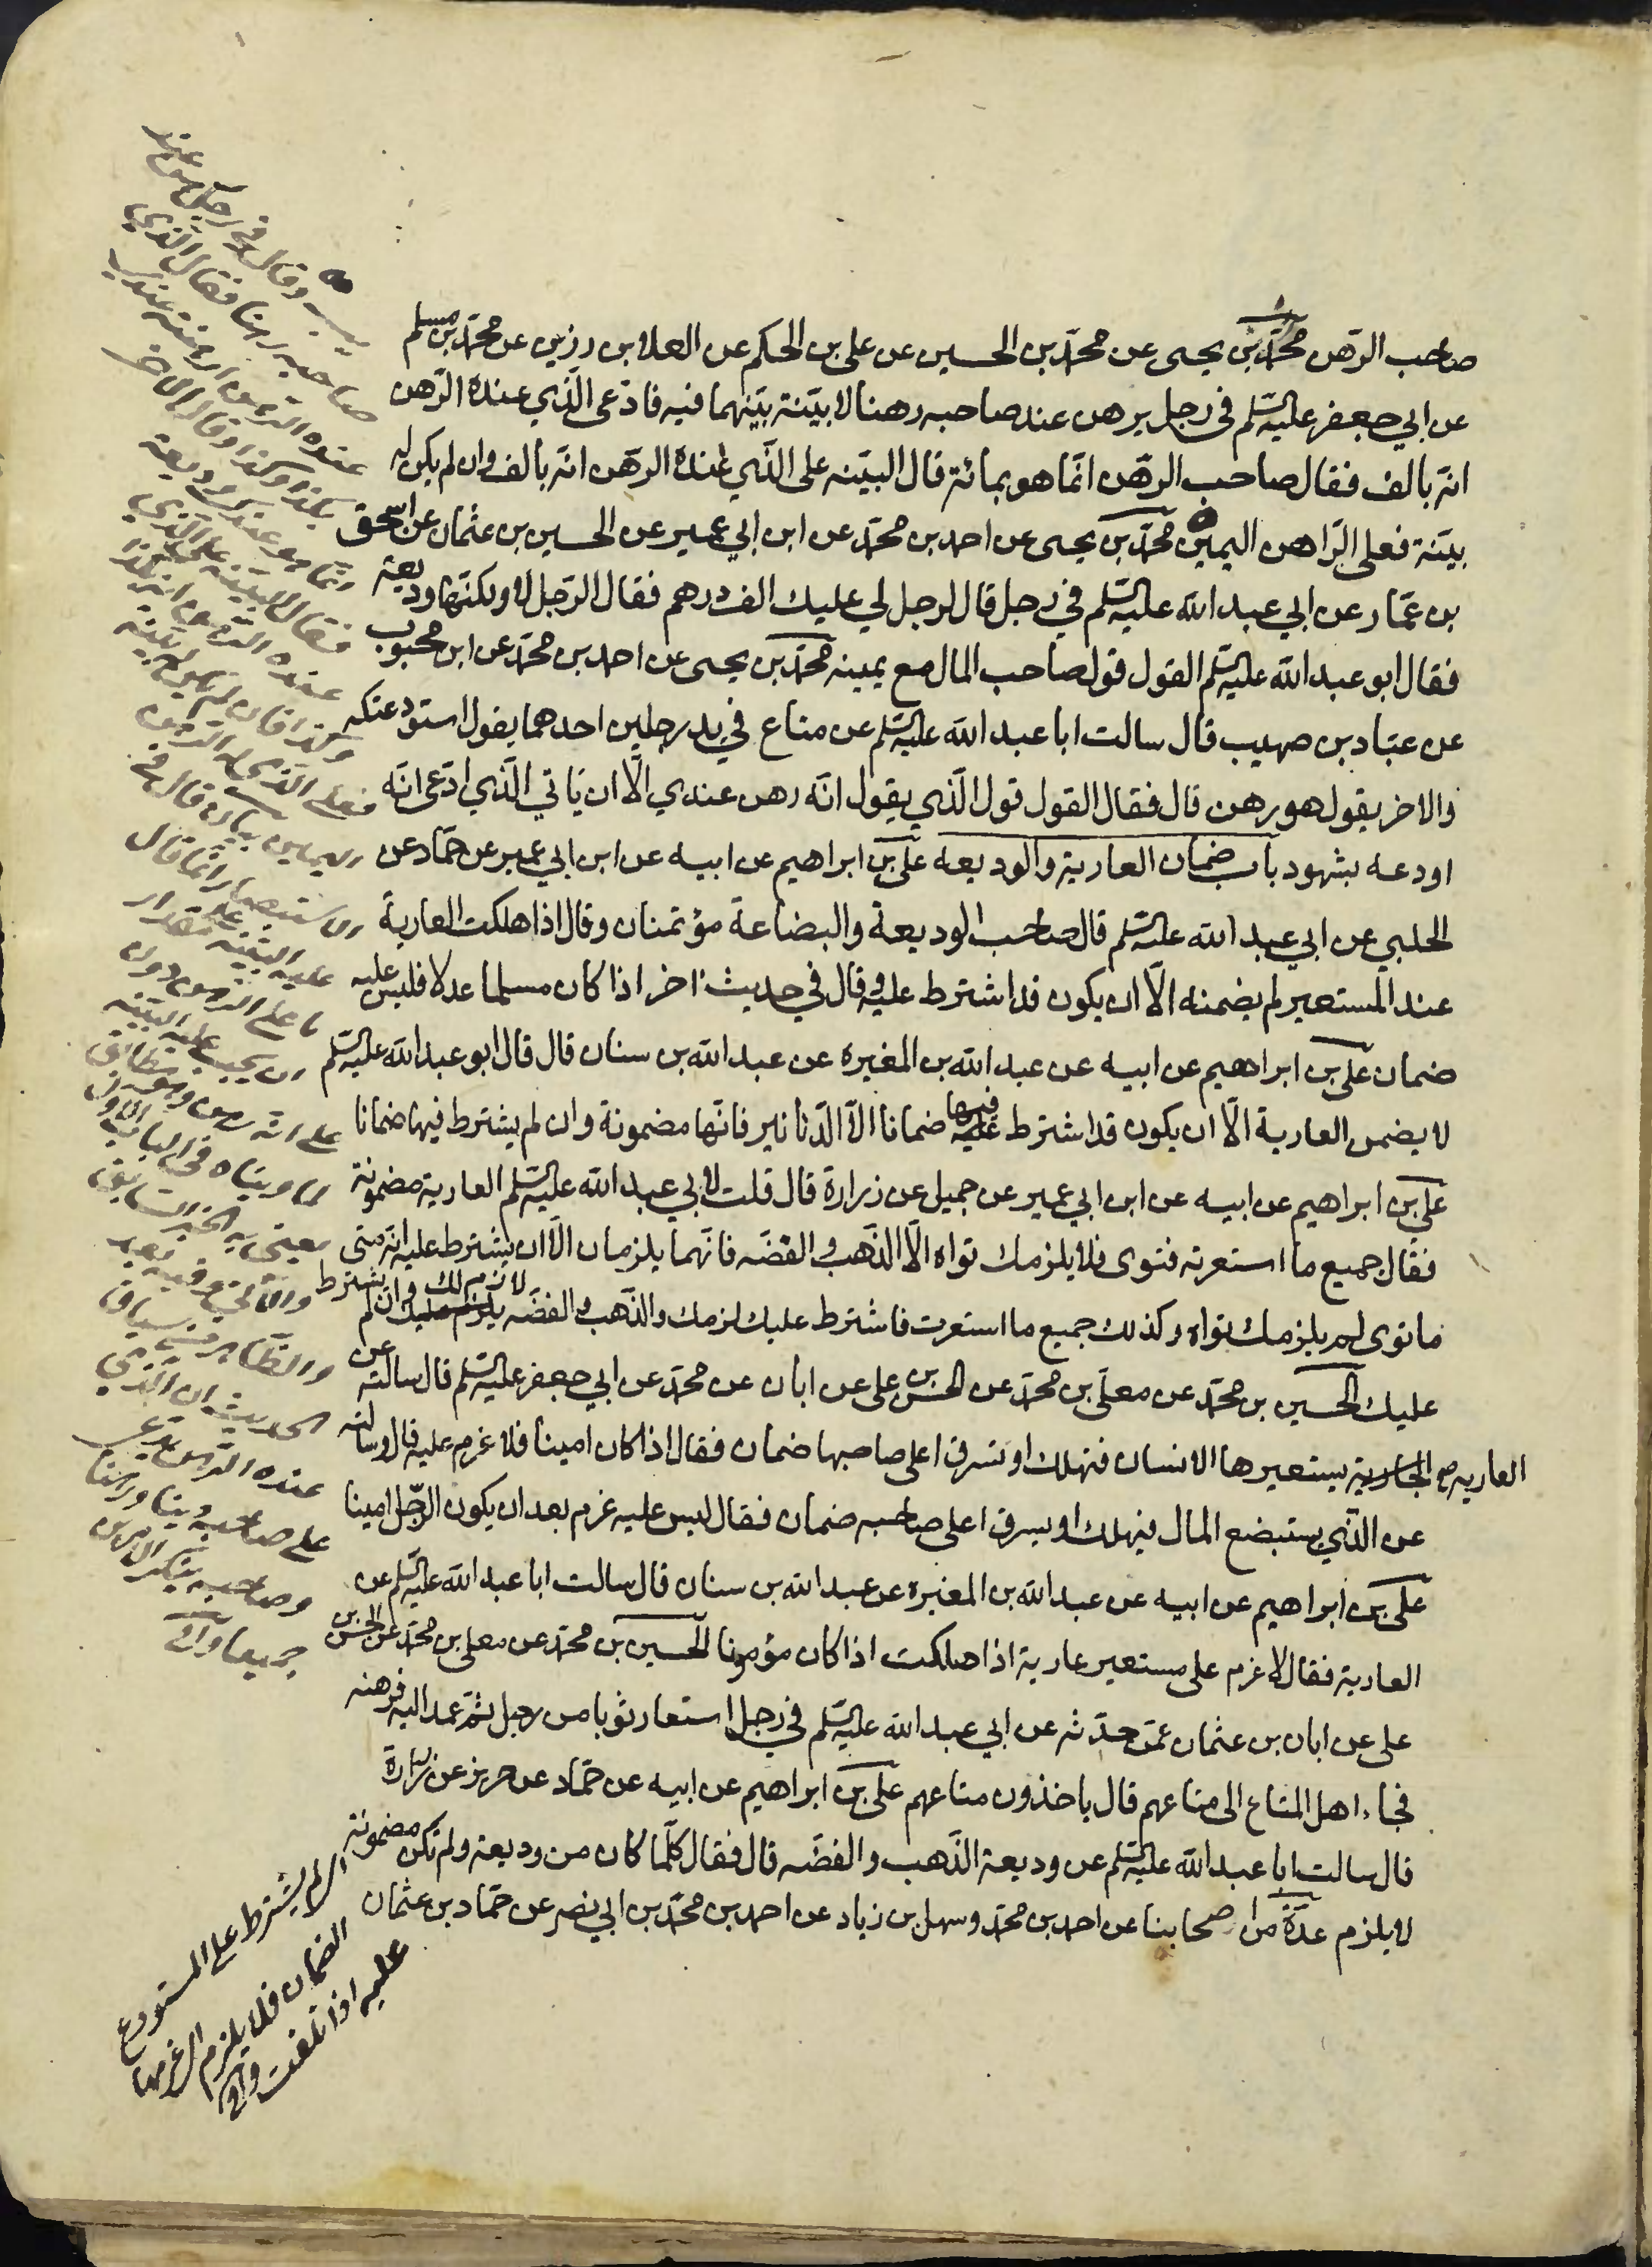 صاحب الرهن محمد بن يحيى عن محمد بن الحسين عن على بن الحكم عن العلا بن رزين عن محمد بن مسلم
عن ابي جعفر عليه السلم في رجل يرهن عند صاحبه رهنا لا بينة بينهما فيه فادعى الذي عنده الرهن
انه بالف فقال صاحب الرهن انما هو بمائة قال البينه على الذي عنده الرهن انه بالف وان لم يكن له
بينة فعلى الراهن اليمين محمد بن يحيى عن احمد بن محمد عن ابن ابي عمير عن الحسين بن عثمان عن اسحق
بن عمار عن ابي عبد الله عليه السلم في رجل قال لرجل لي عليك الف درهم فقال الرجل لا ولكنها وديعة
فقال ابو عبد الله عليه السلم القول قول صاحب المال مع يمينه محمد بن يحيى عن احمد بن محمد عن ابن محبوب
عن عباد بن صهيب قال سالت ابا عبد الله عليه السلم عن متاع في يد رجلين احدهما يقول استودعتكه
والاخر يقول هو رهن قال فقال القول قول الذي يقول انه رهن عندي الا ان ياتي الذي ادعى انه
اودعه بشهود باب ضمان العارية والوديعه على بن ابراهيم عن ابيه عن ابن ابي عمير عن حماد عن
الحلبي عن ابي عبد الله عليه السلم قال صاحب الوديعة والبضاعة مؤتمنان وقال اذا هلكت العارية
عند المستعير لم يضمنه الا ان يكون قد اشترط عليه وقال في حديث اخر اذا كان مسلما عدلا فليس عليه
ضمان على بن ابراهيم عن ابيه عن عبد الله بن المغيرة عن عبد الله بن سنان قال قال ابو عبد الله عليه السلم
لا يضمن العارية الا ان يكون قد اشترط عليه فيها ضمانا الا الدنانير فانها مضمونة وان لم يشترط فيها ضمانا
على بن ابراهيم عن ابيه عن ابن ابي عمير عن جميل عن زرارة قال قلت لابي عبد الله عليه السلم العارية مضمونة
فقال جميع ما استعرته فتوى فلا يلزمك تواه الا الذهب والفضه فانهما يلزمان الا ان يشترط عليه انه متى
ما توى لم يلزمك تواه وكذلك جميع ما استعرت فاشترط عليك لزمك والذهب والفضه لازم لك وان لم يشترط
عليك الحسين بن محمد عن معلى بن محمد عن الحسن بن على عن ابان عن محمد عن ابي جعفر عليه السلم قال سالته عن
العاريه الجارية يستعيرها الانسان فتهلك او تسرق اعلى صاحبها ضمان فقال اذا كان امينا فلا غرم عليه قال وسالته
عن الذي يستبضع المال فيهلك او يسرق اعلى صاحبه ضمان فقال ليس عليه غرم بعد ان يكون الرجل امينا
على بن ابراهيم عن ابيه عن عبد الله بن المغيرة عن عبد الله بن سنان قال سالت ابا عبد الله عليه السلم عن
العارية فقال لا غرم على مستعير عارية اذا هلكت اذا كان مؤمونا الحسين بن محمد عن معلى بن محمد عن الحسن بن
على عن ابان بن عثمان عمن حدثه عن ابي عبد الله عليه السلم في رجل استعار ثوبا من رجل ثم عمد اليه فرهنه
فجاء اهل المتاع الى متاعهم قال ياخذون متاعهم على بن ابراهيم عن ابيه عن حماد عن حريز عن زرارة
قال سالت ابا عبد الله عليه السلم عن وديعة الذهب والفضه قال فقال كلما كان من وديعة ولم تكن مضمونة
لا يلزم عدة من اصحابنا عن احمد بن محمد وسهل بن زياد عن احمد بن محمد بن ابي نصر عن حماد بن عثمان
وقال في رجل رهن عند
صاحبه رهنا فقال الذي
عنده الرهن ارتهنته عندي
بكذا وكذا وقال الاخر
انما هو عندك وديعة
فقال البينة على الذي
عنده الرهن انه بكذا
وكذا فان لم يكن له بينة
فعلى الذي له الرهن
اليمين
الاستبصار انما قال
عليه البينة على مقدار
ما على الرهن دون
ان يجب عليه البينة
على انه رهن
لما رويناه في الباب الاول
يعني به الخبر السابق
وفيه بعد
والظاهر من سياق
الحديث ان الذي
عنده الرهن يدعي
على صاحبه دينا ورهنا
وصاحبه ينكر الامرين
جميعا وافي
اي لم يشترط على المستودع
الضمان فلا يلزم اي غرمها
عليه اذا تلفت وافي